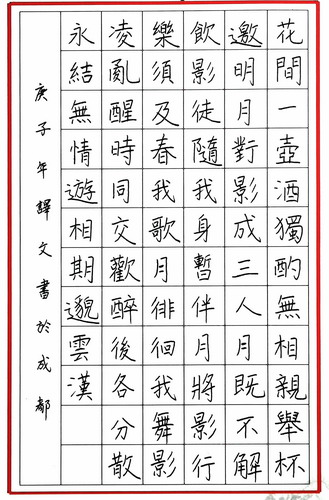 花間一壺酒獨酌無相親舉杯
邀明月對影成三人月既不解
飲影徒隨我身暫伴月將影行
樂須及春我歌月徘徊我舞影
凌亂醒時同交歡醉後各分散
永結無情遊相期邈雲漢
庚子年譯文書於成都